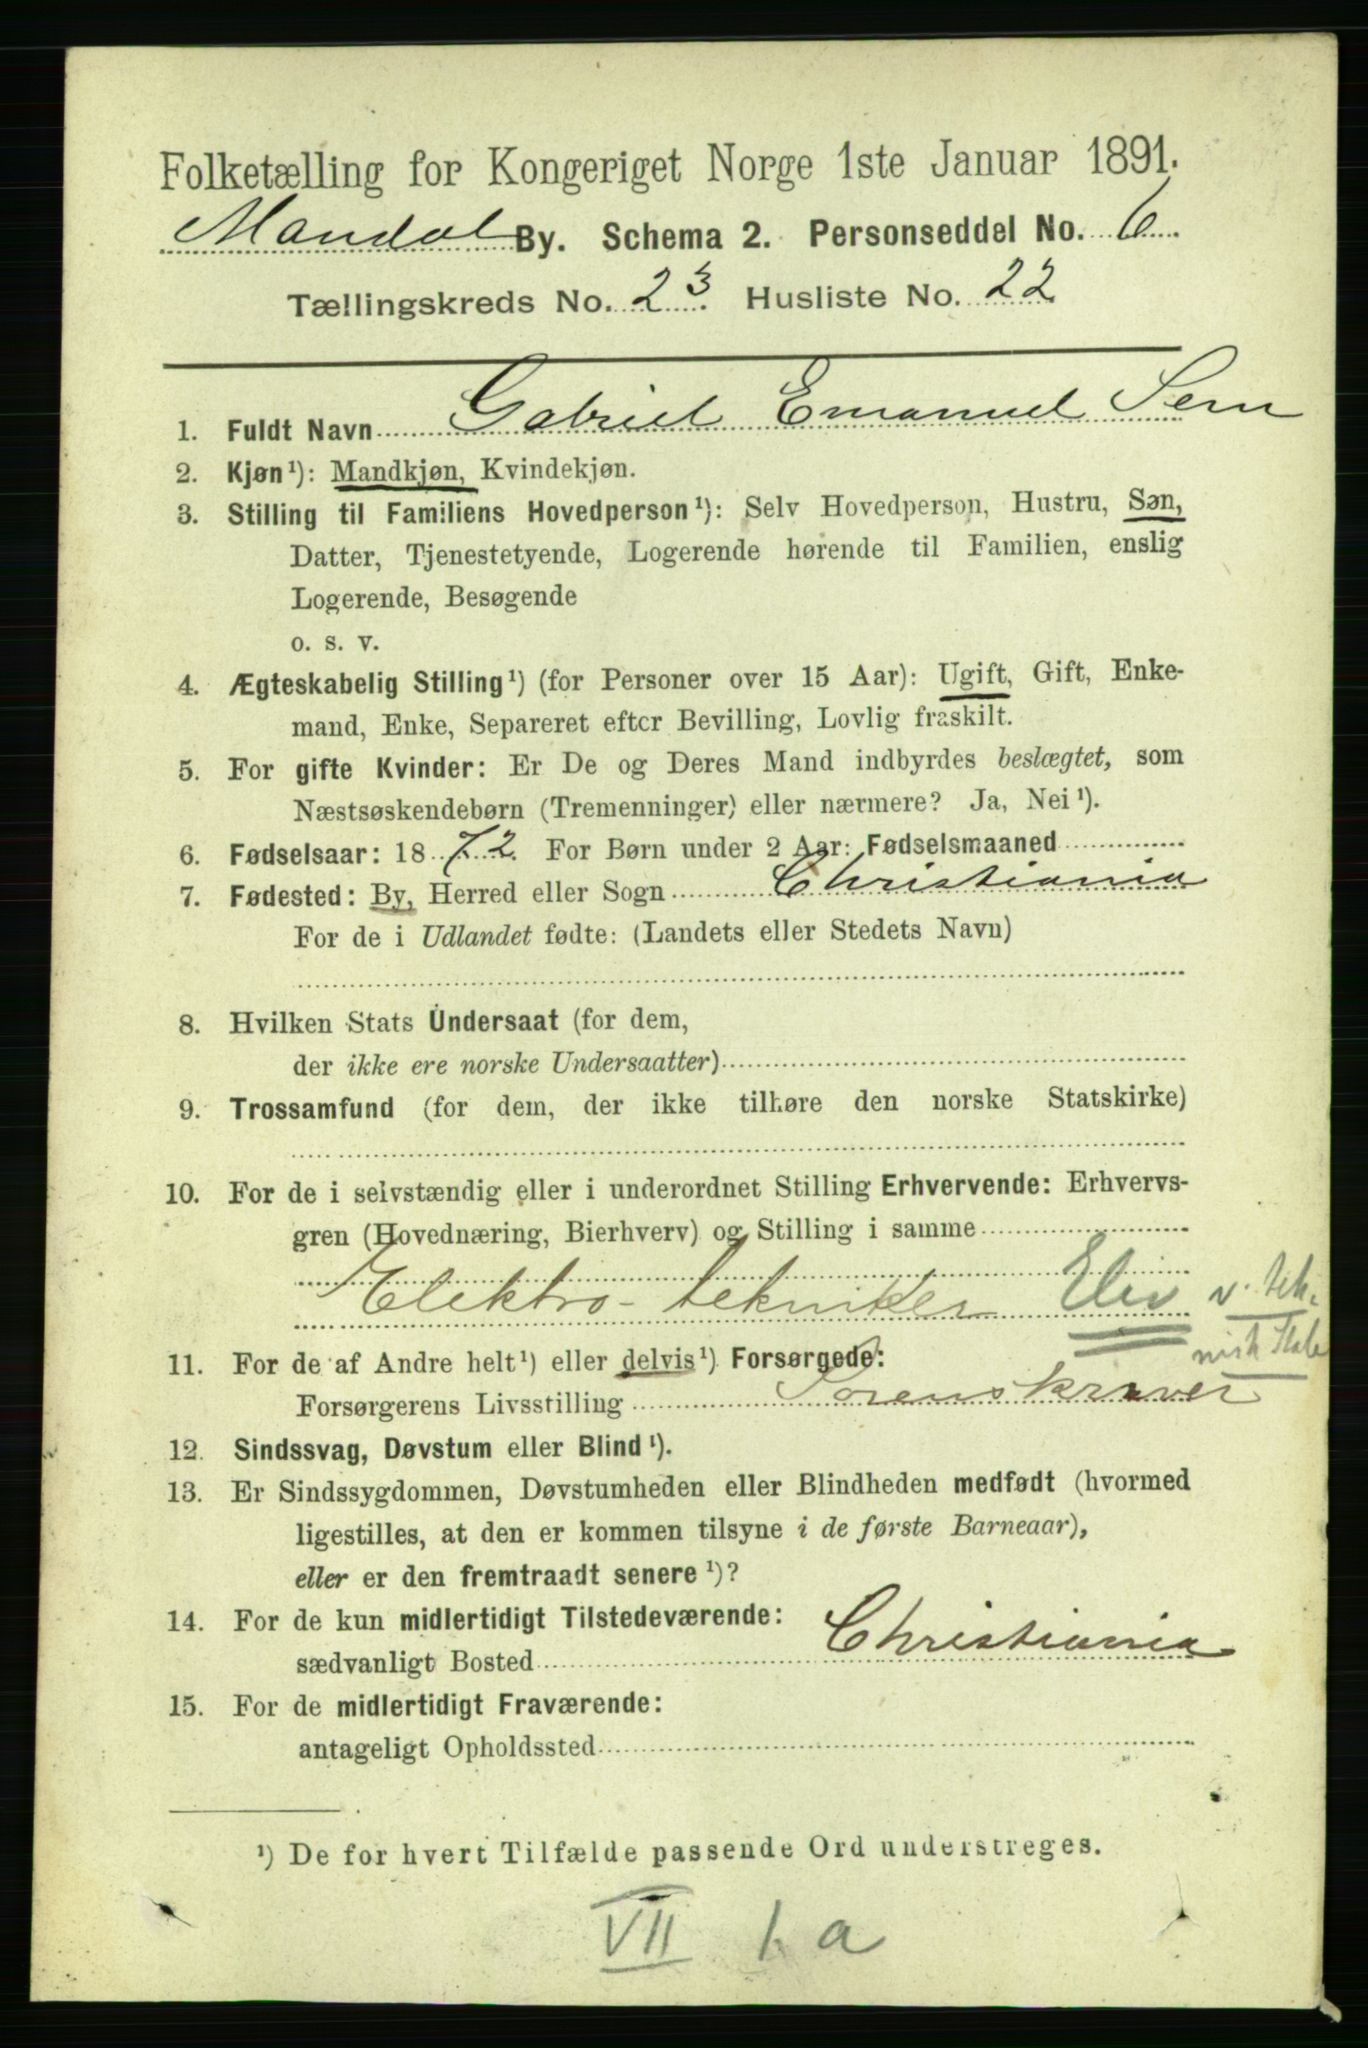 Folketælling for Kongeriget Norge 1ste Januar 1891.
Mandal By. Schema 2. Personseddel No. 6
Tællingskreds No. 23. Husliste No. 22
1. Fuldt Navn Gabriel Emanuel Sem
2. Kjøn¹): Mandkjøn, Kvindekjøn.
3. Stilling til Familiens Hovedperson¹): Selv Hovedperson, Hustru, Søn,
Datter, Tjenestetyende, Logerende hørende til Familien, enslig
Logerende, Besøgende
o. s. v.
4. Ægteskabelig Stilling¹) (for Personer over 15 Aar): Ugift, Gift, Enke-
mand, Enke, Separeret efter Bevilling, Lovlig fraskilt.
5. For gifte Kvinder: Er De og Deres Mand indbyrdes beslægtet, som
Næstsøskendebørn (Tremenninger) eller nærmere? Ja, Nei¹).
6. Fødselsaar: 1872. For Børn under 2 Aar: Fødselsmaaned
7. Fødested: By, Herred eller Sogn Christiania
For de i Udlandet fødte: (Landets eller Stedets Navn)
8. Hvilken Stats Undersaat (for dem,
der ikke ere norske Undersaatter)
9. Trossamfund (for dem, der ikke tilhøre den norske Statskirke)
10. For de i selvstændig eller i underordnet Stilling Erhvervende: Erhvervs-
gren (Hovednæring, Bierhverv) og Stilling i samme
Elektro-tekniker Elev v. tek-
nisk Skole
11. For de af Andre helt¹) eller delvis¹) Forsørgede:
Forsørgerens Livsstilling Sorenskriver
12. Sindssvag, Døvstum eller Blind¹).
13. Er Sindssygdommen, Døvstumheden eller Blindheden medfødt (hvormed
ligestilles, at den er kommen tilsyne i de første Barneaar),
eller er den fremtraadt senere¹)?
14. For de kun midlertidigt Tilstedeværende:
sædvanligt Bosted Christiania
15. For de midlertidigt Fraværende:
antageligt Opholdssted
¹) De for hvert Tilfælde passende Ord understreges.
VII 1. a